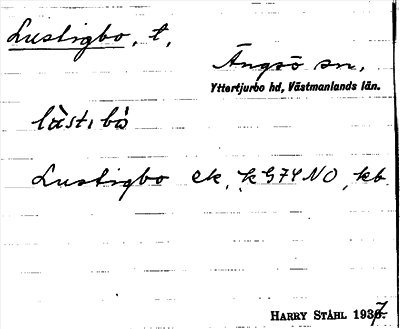 Lustigbo, t,
Ängsö sn,
Yttertjurbo hd, Västmanlands län.
Lustigbo ek, kG74NO, kb.
HARRY STÅHL 1937.